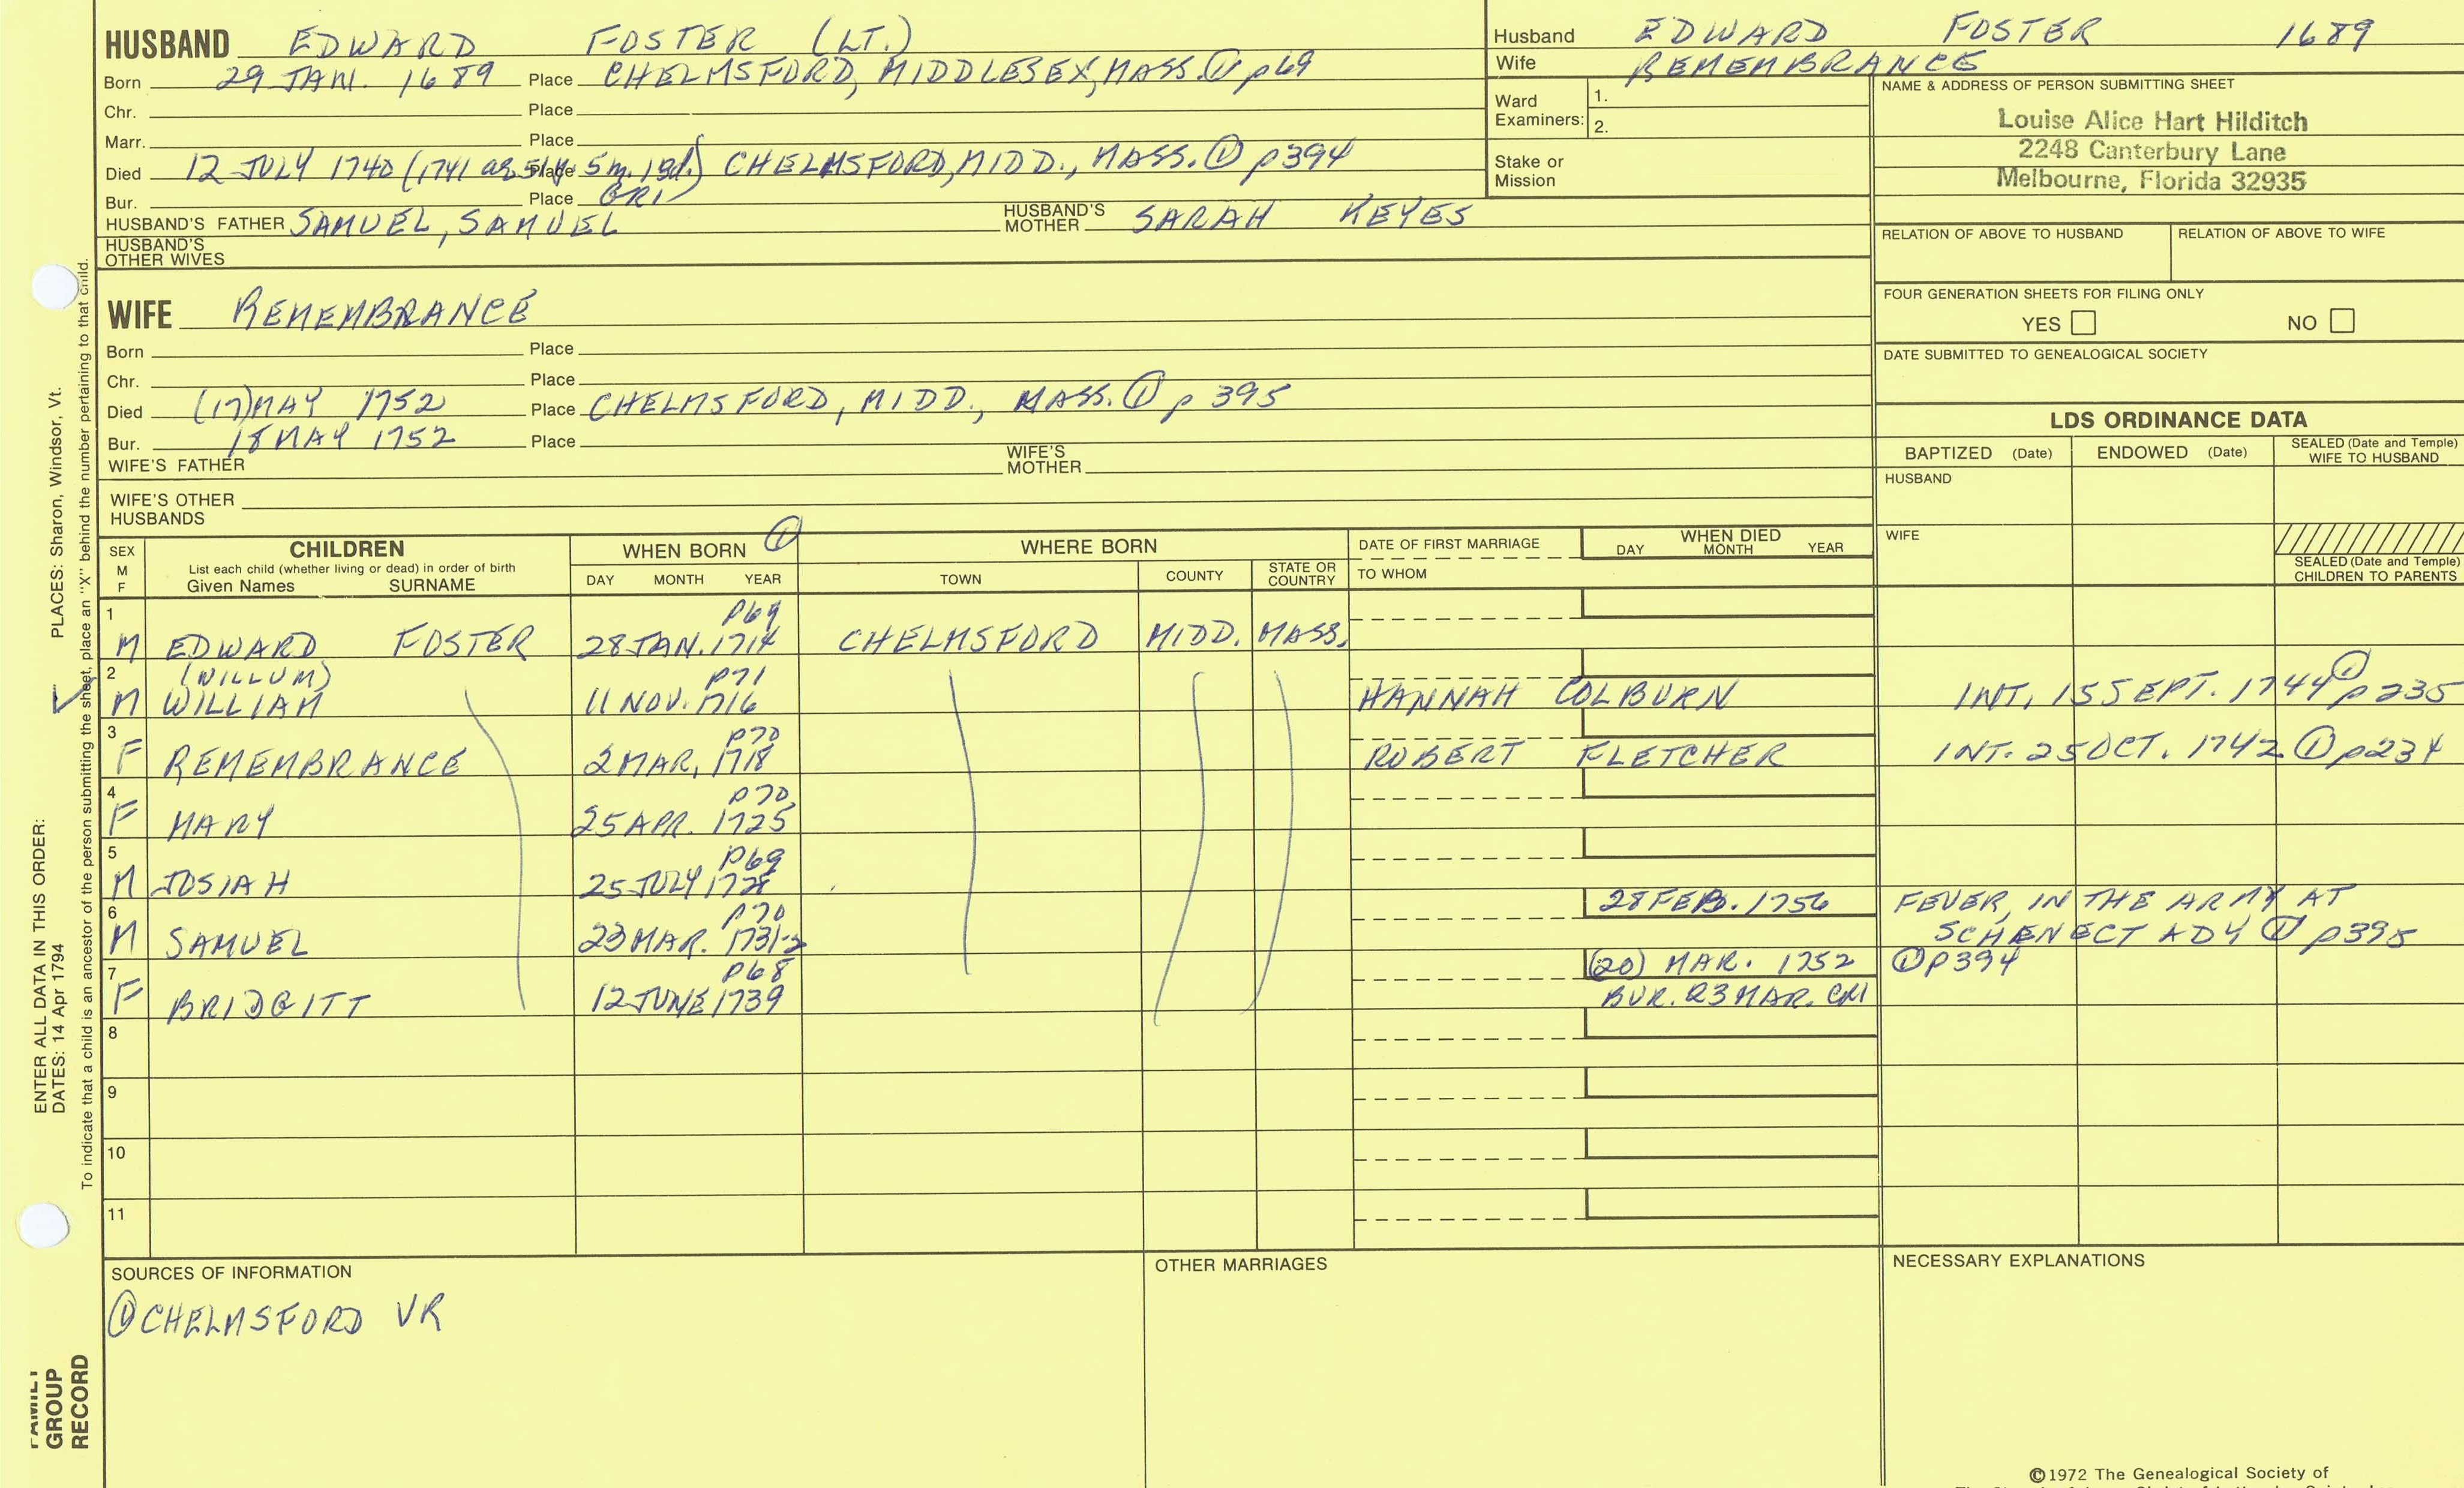 HUSBAND EDWARD FOSTER (LT.)
Born 29 JAN. 1689 Place CHELMSFORD, MIDDLESEX, MASS. ① p69
Chr. Place
Marr. Place
Died 12 JULY 1740 (1741 ae 51y 5m. 13d.) Place CHELMSFORD, MIDD., MASS. ① p394
Bur. Place GR1
HUSBAND'S FATHER SAMUEL, SAMUEL HUSBAND'S MOTHER SARAH KEYES
HUSBAND'S OTHER WIVES
Husband EDWARD FOSTER 1689
Wife REMEMBRANCE
Ward Examiners: 1.
2.
Stake or Mission
NAME & ADDRESS OF PERSON SUBMITTING SHEET
Louise Alice Hart Hilditch
2248 Canterbury Lane
Melbourne, Florida 32935
RELATION OF ABOVE TO HUSBAND RELATION OF ABOVE TO WIFE
FOUR GENERATION SHEETS FOR FILING ONLY
YES NO
DATE SUBMITTED TO GENEALOGICAL SOCIETY
WIFE REMEMBRANCE
Born Place
Chr. Place
Died (17) MAY 1752 Place CHELMSFORD, MIDD., MASS. ① p 395
Bur. 18 MAY 1752 Place
WIFE'S FATHER WIFE'S MOTHER
WIFE'S OTHER HUSBANDS
LDS ORDINANCE DATA
BAPTIZED (Date) ENDOWED (Date) SEALED (Date and Temple) WIFE TO HUSBAND
HUSBAND
WIFE
SEALED (Date and Temple) CHILDREN TO PARENTS
SEX M F CHILDREN List each child (whether living or dead) in order of birth Given Names SURNAME
WHEN BORN ① DAY MONTH YEAR
WHERE BORN TOWN COUNTY STATE OR COUNTRY
DATE OF FIRST MARRIAGE TO WHOM
WHEN DIED DAY MONTH YEAR
1 p69
M EDWARD FOSTER 28 JAN. 1714 CHELMSFORD MIDD. MASS.
2 (WILLUM) p71
M WILLIAM 11 NOV. 1716 HANNAH COLBURN INT. 15 SEPT. 1744 ① p235
3 p70
F REMEMBRANCE 2 MAR, 1718 ROBERT FLETCHER INT. 25 OCT. 1742 ① p234
4 p70
F MARY 25 APR. 1725
5 p69
M JOSIAH 25 JULY 1728
6 p70 28 FEB. 1756 FEVER, IN THE ARMY AT
M SAMUEL 23 MAR. 1731-2 SCHENECTADY ① p395
7 p68 (20) MAR. 1752 ① p394
F BRIDGITT 12 JUNE 1739 BUR. 23 MAR. GR1
8
9
10
11
SOURCES OF INFORMATION
① CHELMSFORD VR
OTHER MARRIAGES
NECESSARY EXPLANATIONS
©1972 The Genealogical Society of
PLACES: Sharon, Windsor, Vt.
ENTER ALL DATA IN THIS ORDER:
DATES: 14 Apr 1794
To indicate that a child is an ancestor of the person submitting the sheet, place an "X" behind the number pertaining to that child.
FAMILY
GROUP
RECORD